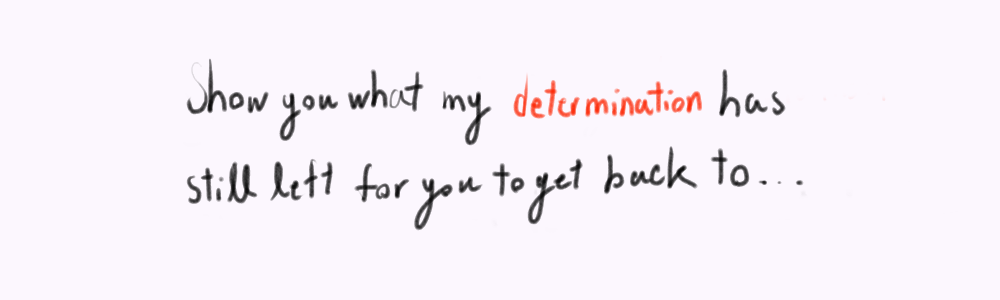 Show you what my determination has
still left for you to get back to...